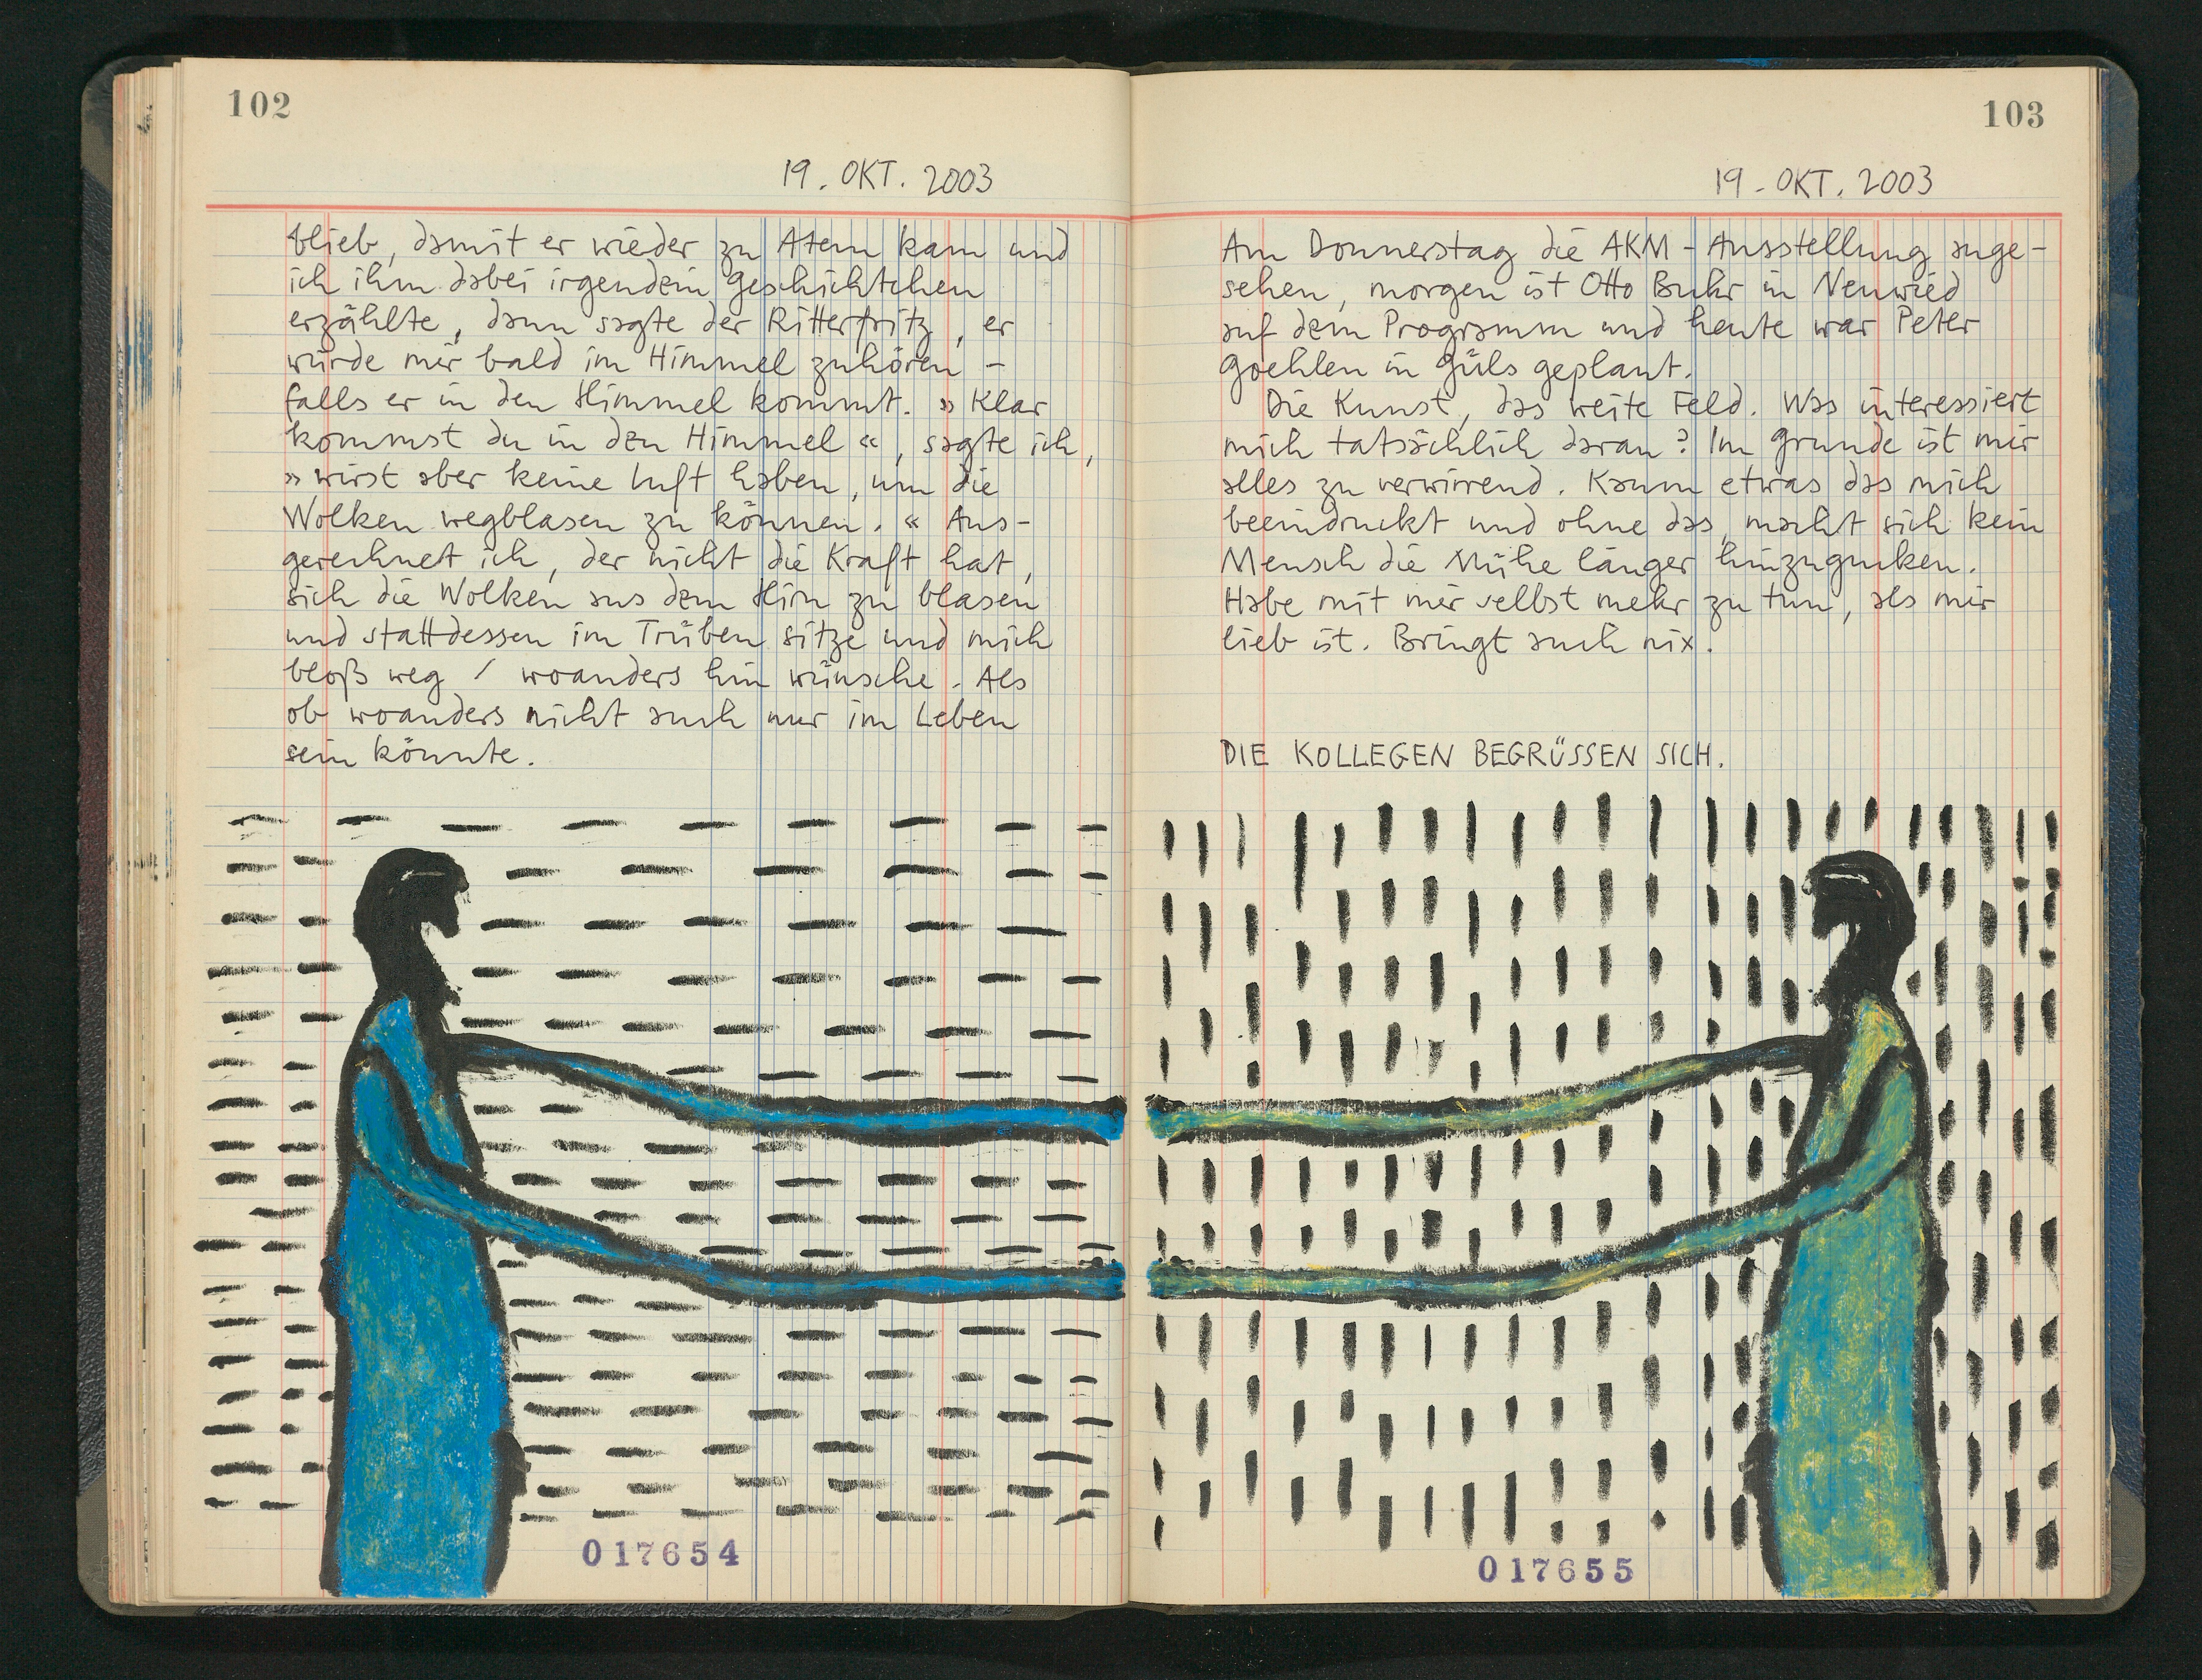 102
19. OKT. 2003
blieb, damit er wieder zu Atem kam und
ich ihm dabei irgendein Geschichtchen
erzählte, dann sagte der Ritterfritz, er
würde mir bald im Himmel zuhören –
falls er in den Himmel kommt. » Klar
kommst du in den Himmel «, sagte ich,
» wirst aber keine Luft haben, um die
Wolken wegblasen zu können. « Aus-
gerechnet ich, der nicht die Kraft hat,
sich die Wolken aus dem Hirn zu blasen
und stattdessen im Trüben sitze und mich
bloß weg / woanders hin wünsche. Als
ob woanders nicht auch nur im Leben
sein könnte.
017654
103
19. OKT. 2003
Am Donnerstag die AKM-Ausstellung ange-
sehen, morgen ist Otto Buhr in Neuwied
auf dem Programm und heute war Peter
Goehlen in Güls geplant.
Die Kunst, das weite Feld. Was interessiert
mich tatsächlich daran? Im Grunde ist mir
alles zu verwirrend. Kaum etwas das mich
beeindruckt und ohne das, macht sich kein
Mensch die Mühe länger hinzugucken.
Habe mit mir selbst mehr zu tun, als mir
lieb ist. Bringt auch nix.
DIE KOLLEGEN BEGRÜSSEN SICH.
017655